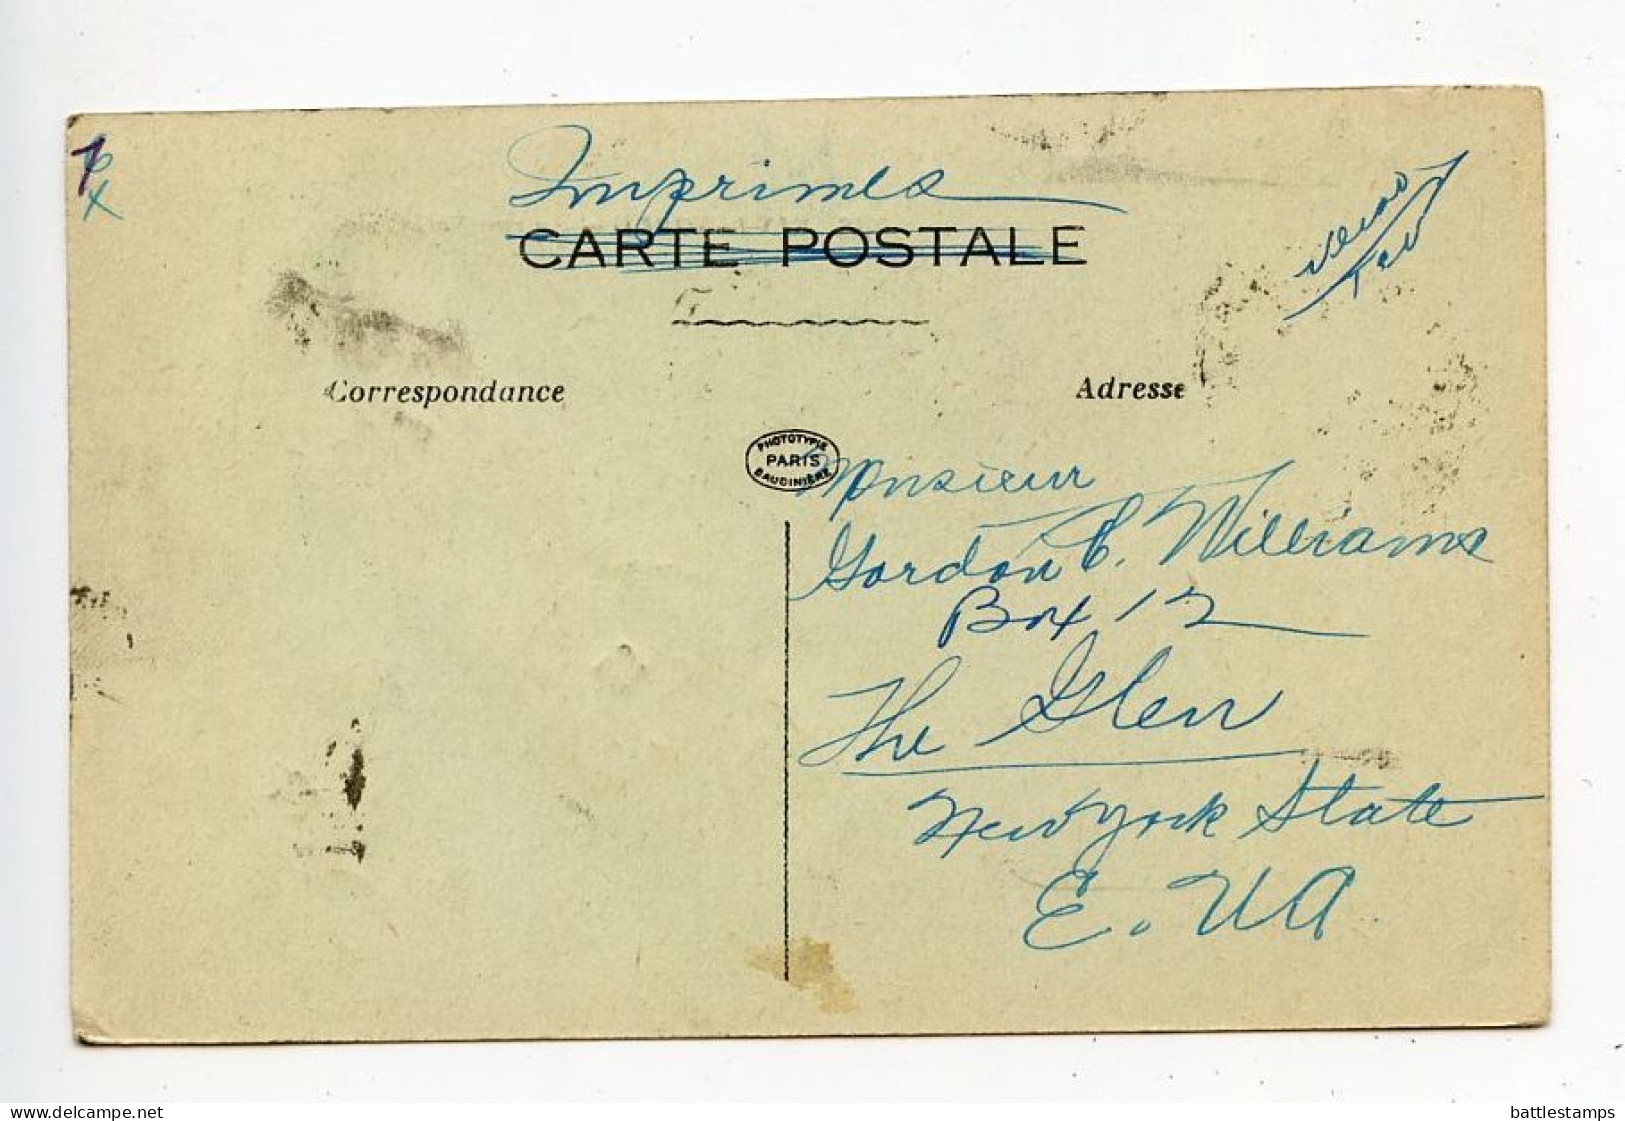 Imprimés
CARTE POSTALE
Correspondance
Adresse
PHOTOTYPIE
PARIS
BAUDINIÈRE
Monsieur
Gordon C. Williams
Box 12
The Glen
New York State
E. UA
delcampe.net
battlestamps